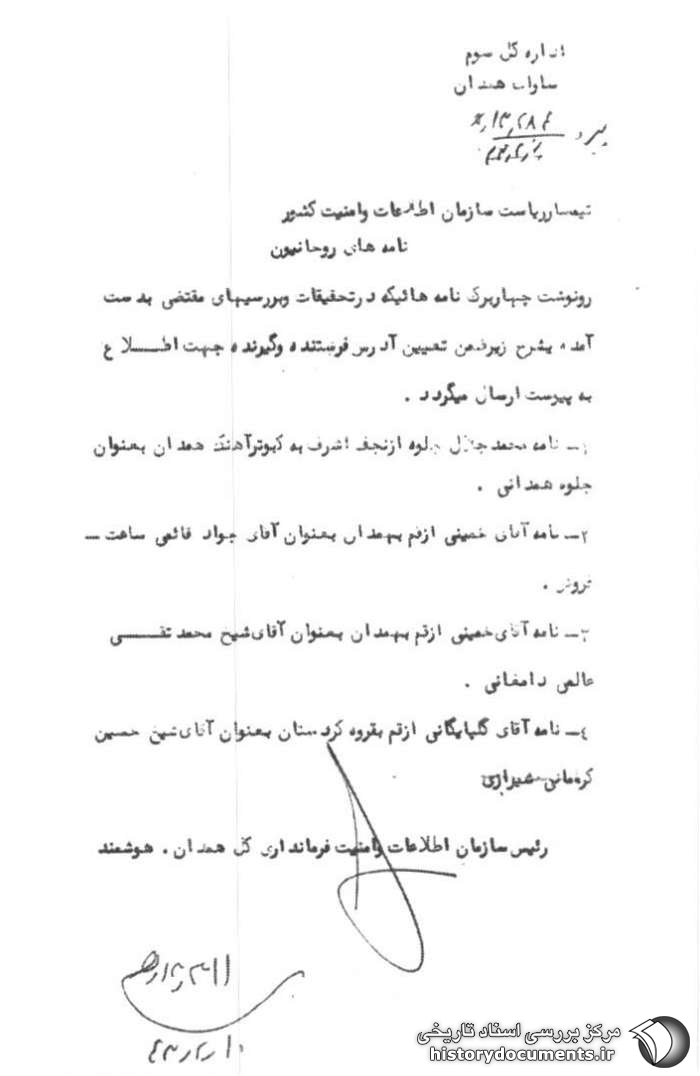 اداره کل سوم
ساواک همدان
تیمسار ریاست سازمان اطلاعات و امنیت کشور
نامه های روحانیون
رونوشت چهاربرگ نامه هائیکه در تحقیقات و بررسیهای مقتضی بدست
آمده بشرح زیر ضمن تعیین آدرس فرستنده و گیرنده جهت اطلاع
به پیوست ارسال میگردد .
۱ـ نامه محمد جلال جلوه از نجف اشرف به کبوترآهنگ همدان بعنوان
جلوه همدانی .
۲ـ نامه آقای خمینی از قم بهمدان بعنوان آقای جواد قائمی ساعت ـ
فروش .
۳ـ نامه آقای خمینی از قم بهمدان بعنوان آقای شیخ محمد تقی
عالمی دامغانی .
٤ـ نامه آقای گلپایگانی از قم بقروه کردستان بعنوان آقای شیخ حسین
کرمانی شیرازی
رئیس سازمان اطلاعات و امنیت فرمانداری کل همدان . هوشمند
مرکز بررسی اسناد تاریخی
historydocuments.ir